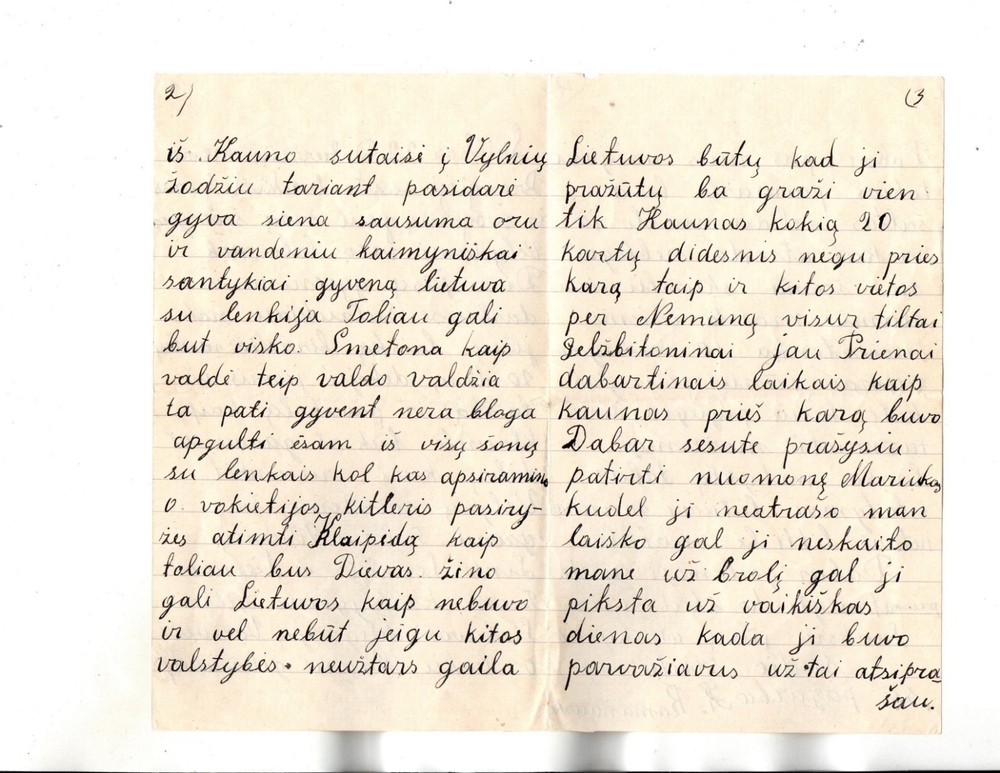 2)
iš Kauno sutaisė į Vylnių
žodžiu tariant pasidarė
gyva siena sausuma oru
ir vandeniu kaimyniškai
santykiai gyveną lietuva
su lenkija Toliau gali
but visko. Smetona kaip
valdė teip valdo valdžia
ta pati gyvent nera bloga
apgulti ėsam iš visų šonų
su lenkais kol kas apsiramino
o vokietijos kitleris pasiry-
žes atimti Klaipidą kaip
toliau bus Dievas žino
gali Lietuvos kaip nebuvo
ir vel nebūt jeigu kitos
valstybės neužtars gaila
(3
Lietuvos būtų kad ji
pražūtų ba graži vien
tik Kaunas kokią 20
kartų didesnis negu prieš
karą taip ir kitos vietos
per Nemuną visur tiltai
gelžbitoninai jau Prienai
dabartinais laikais kaip
kaunas prieš karą buvo
Dabar sesute prašysiu
patirti nuomonę Mariukos
kudel ji neatrašo man
laiško gal ji neskaito
mane už brolį gal ji
piksta už vaikiškas
dienas kada ji buvo
parvažiavus už tai atsipra
šau.